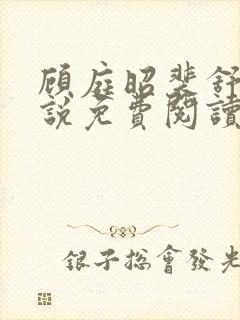 顾庭昭裴舒
說免費閱讀
银子總會發光